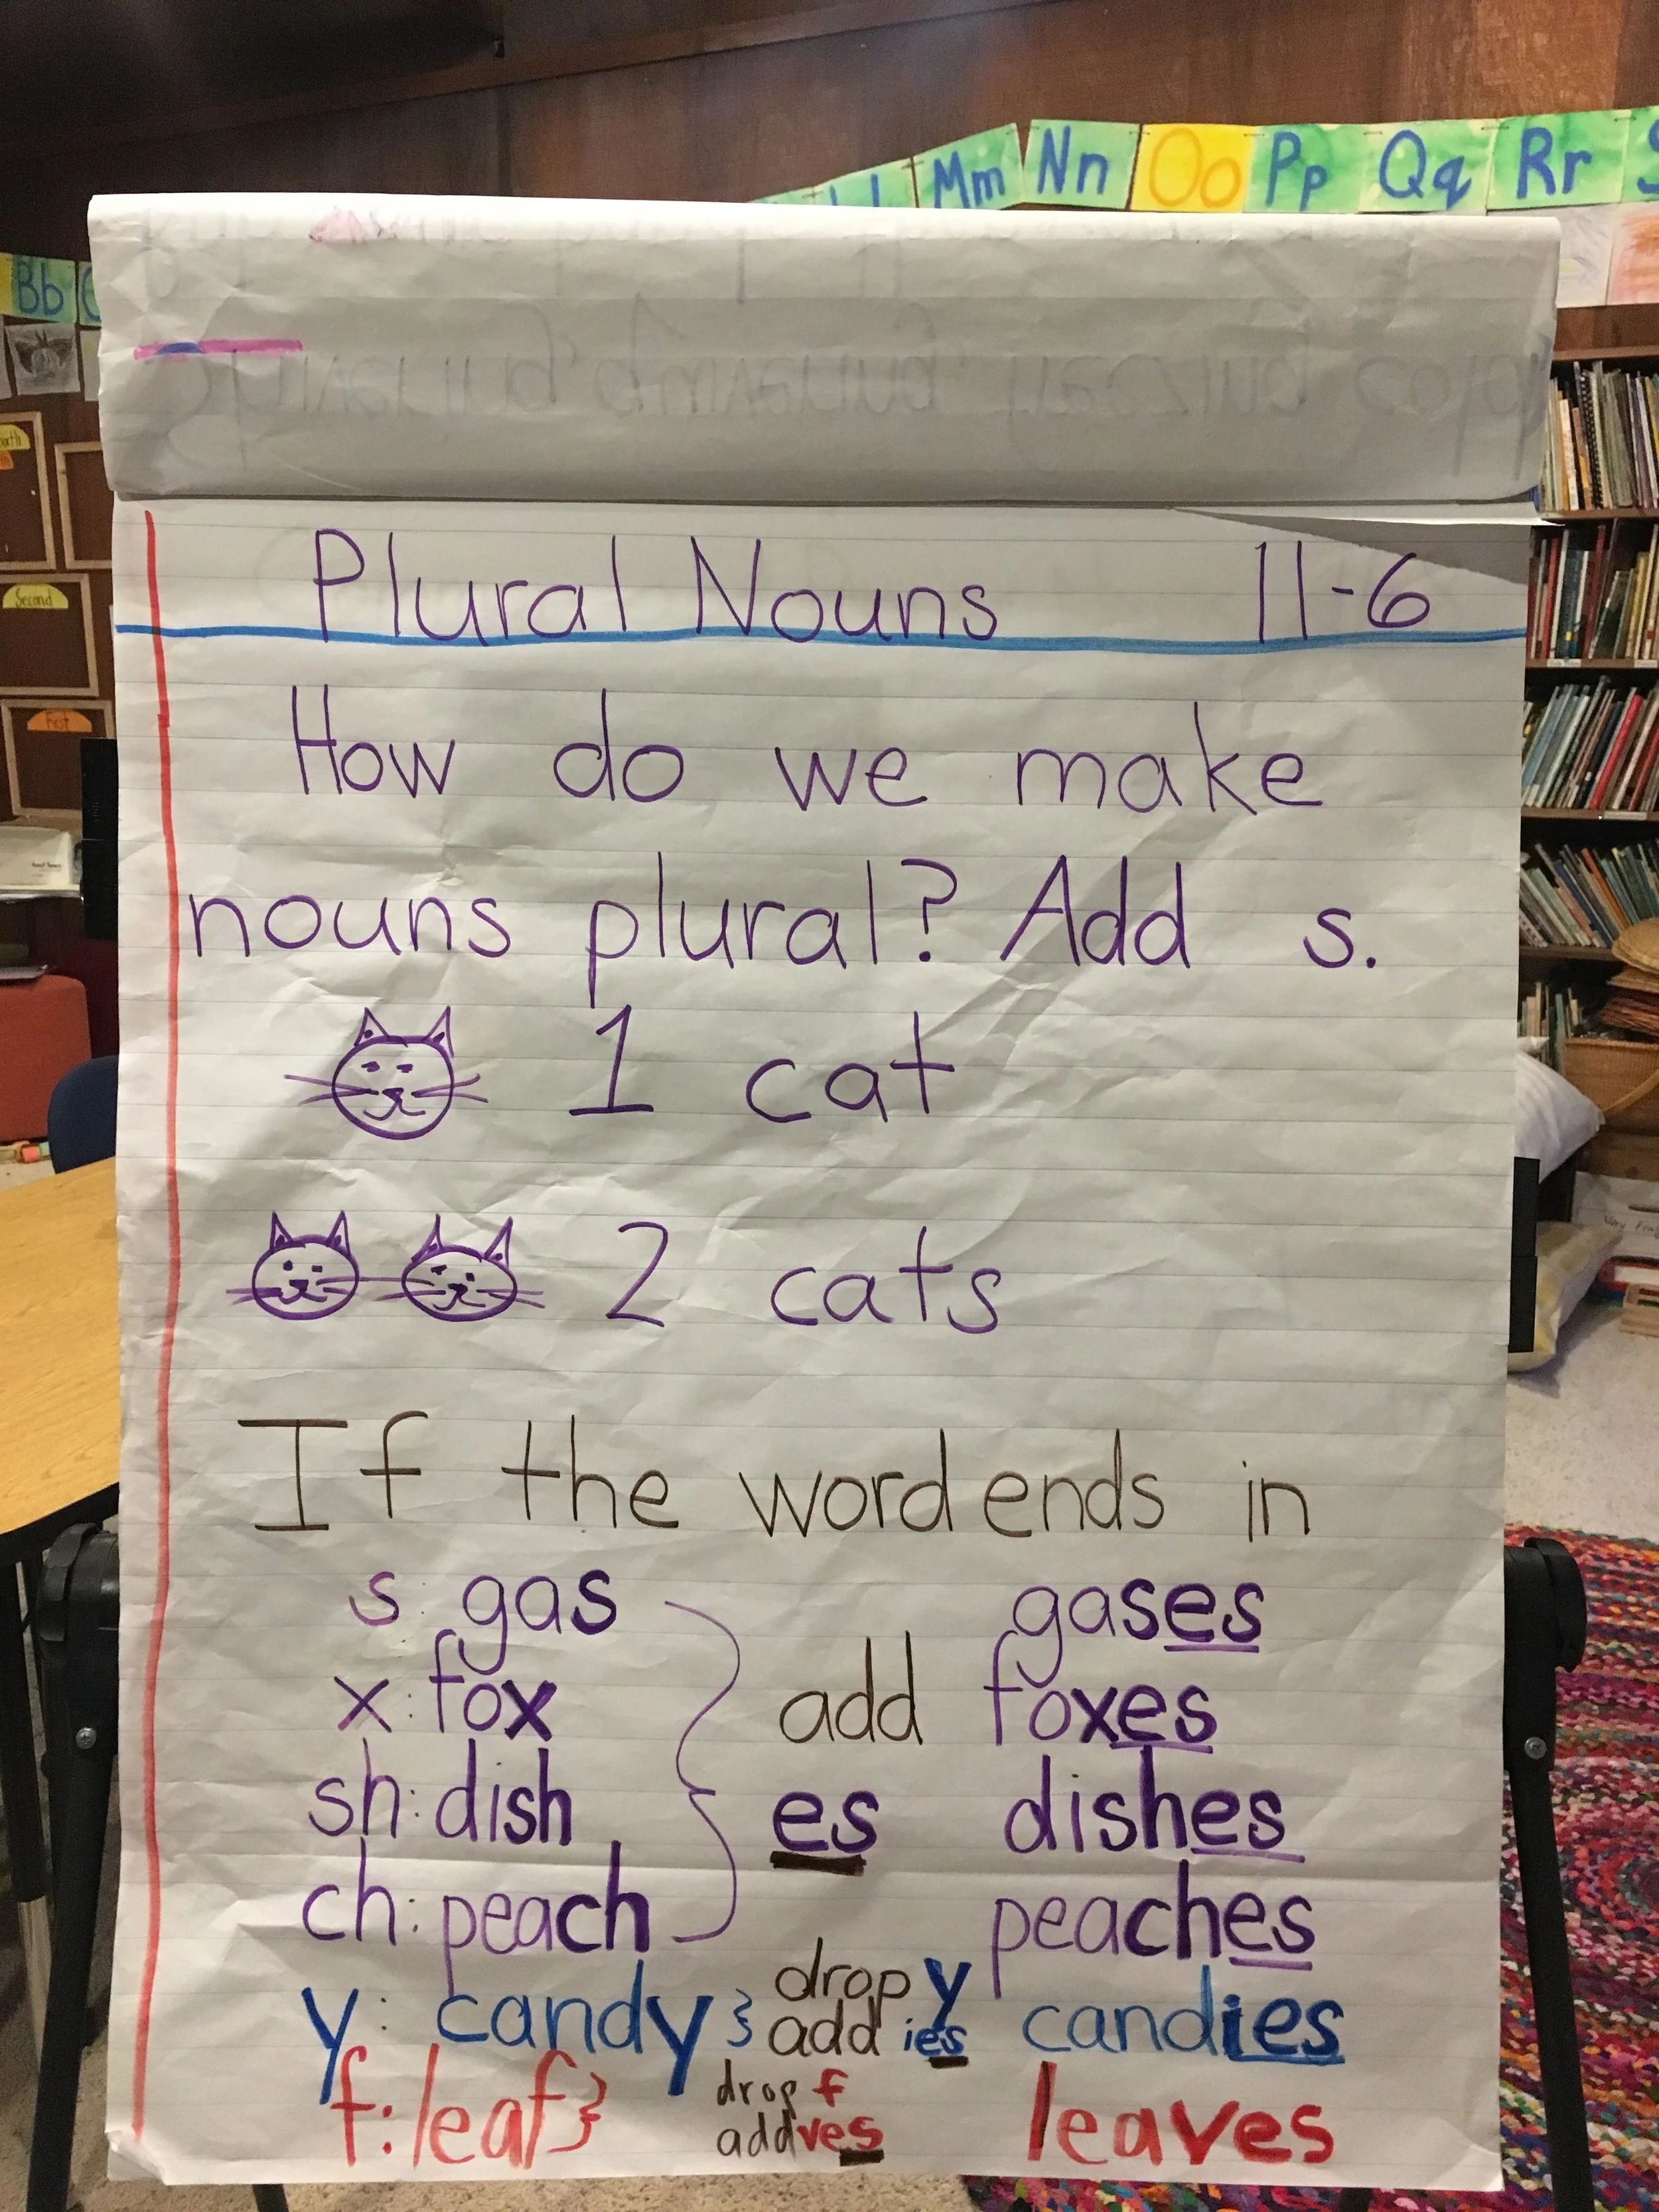 Ll Mm Nn Oo Pp Qq Rr
Bb
Second
First
Plural Nouns 11-6
How do we make
nouns plural? Add s.
1 cat
2 cats
If the word ends in
s: gas gases
x: fox add foxes
sh: dish es dishes
ch: peach peaches
y: candy } drop y add ies candies
f: leaf } drop f add ves leaves